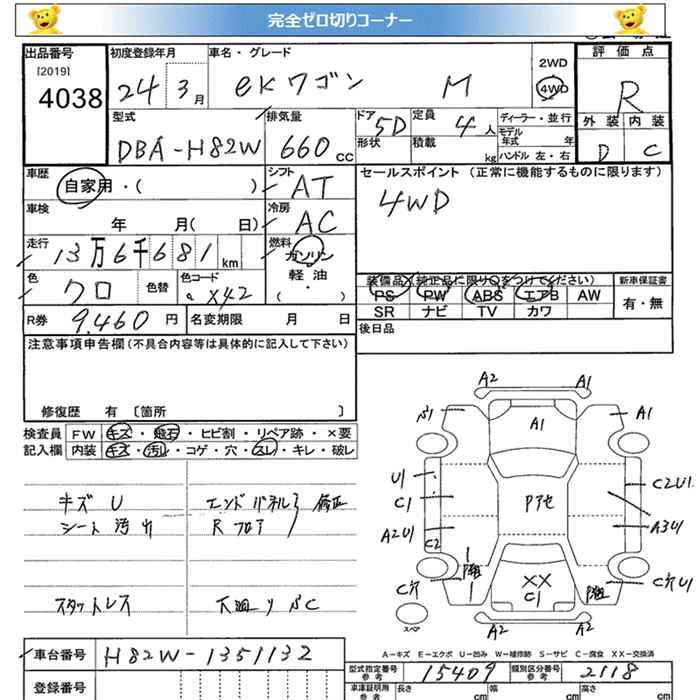 完全ゼロ切りコーナー
出品番号 初度登録年月 車名・グレード 2WD 評価点
[2019] 4038 24 3月 eKワゴン M 4WD R
型式 排気量 ドア 5D 定員 4人 ディーラー・並行 外装 内装
DBA-H82W 660cc 形状 積載 kg モデル年式 年 D C
ハンドル 左・右
車歴 シフト セールスポイント(正常に機能するものに限ります)
自家用・( ) AT 4WD
車検 冷房
年 月( 日) AC
走行 燃料
13万6千681km ガソリン
軽油
( ・ )
色 クロ 色替 色コード X42
装備品(純正品に限り○をつけてください) 新車保証書
PS PW ABS エアB AW 有・無
SR ナビ TV カワ
R券 9,460円 名変期限 月 日 後日品
注意事項申告欄(不具合内容等は具体的に記入して下さい)
修復歴 有 〔箇所 〕
検査員 FW キズ・飛石・ヒビ割・リペア跡・×要
記入欄 内装 キズ・汚れ・コゲ・穴・スレ・キレ・破レ
A2 A1
A1 A1
U1 C1 A2U1 C2
Pアセ
C2U1 A3U1
C穴 XX C1 C穴U1
スペア
A2 A2
キズ U エンドパネル 修正
シート汚れ Rフロア
スタットレス 下廻りSC
A-キズ E-エクボ U-凹み W-補修跡 S-サビ C-腐食 XX-交換済
車台番号 H82W-1351132
型式指定番号 参考 15409 類別区分番号 参考 2118
登録番号
車庫証明用 参考 長さ cm 幅 cm 高さ cm